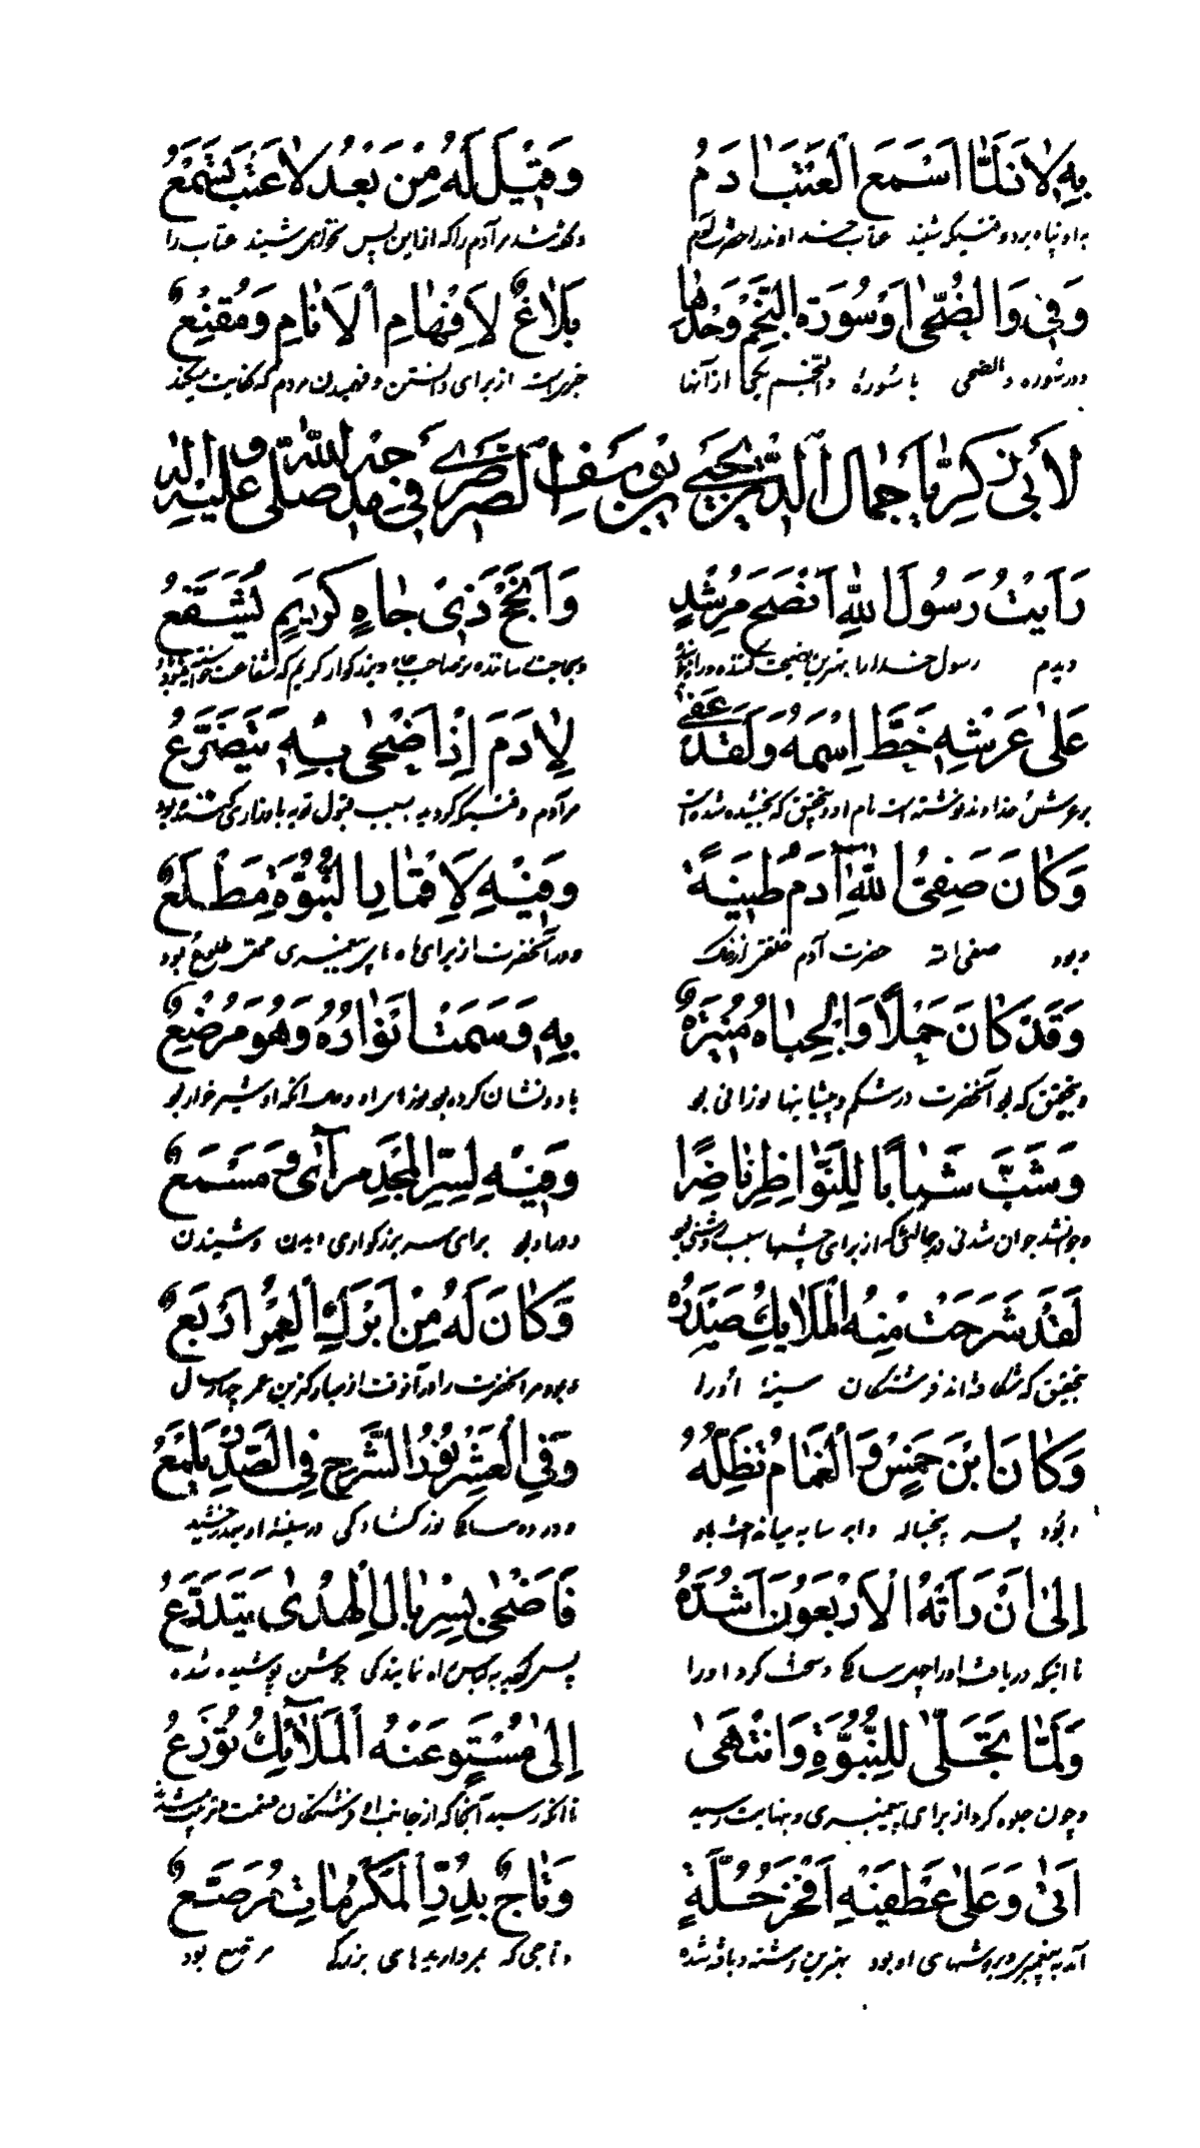 بِهِ لَاذَ لَمَّا اَسْمَعَ الْعَتْبَ اٰدَمُ وَقِيْلَ لَهُ مِنْ بَعْدُ لَا عَتْبَ يُسْمَعُ
به او پناه برد وقتیکه شنید عتاب خداوند را حضرت آدم و گفته شد مر آدم را که از این پس نخواهی شنید عتاب را
وَفِی وَالضُّحٰی اَوْ سُورَةِ النَّجْمِ وَحْدَهَا بَلَاغٌ لِاَفْهَامِ الْاَنَامِ وَمُقْنِعٌ
و در سوره والضحی یا سورهٔ والنجم از آنها از برای دانستن و فهمیدن مردم که کفایت میکند
لِاَبِی زَكَرِيَّا جَمَالِ الدِّيْنِ يَحْيَی بْنِ يُوسُفَ الصَّرْصَرِيِّ فِی مَدْحِه صَلَّی اللهُ عَلَيْهِ وَاٰلِهِ
رَاَيْتُ رَسُولَ اللهِ اَنْصَحَ مُرْشِدٍ وَاَنْجَحَ ذِی جَاهٍ كَرِيمٍ يُشَفَّعُ
دیدم رسول خدا را بهترین نصیحت کننده
عَلیٰ عَرْشِهِ خَطَّ اِسْمَهُ وَلَقَدْ عَفیٰ لِاٰدَمَ اِذْ اَضْحیٰ بِهِ يَتَضَرَّعُ
بر عرش خداوند نوشته است نام او و بتحقیق که بخشیده شده است مر آدم وقتیکه گردید بسبب قبول توبه
وَكَانَ صَفِیُّ اللهِ اٰدَمُ طِينَةً وَفِيْهِ لِاَقْمَارِ النُّبُوَّةِ مَطْلَعٌ
و بود صفی الله حضرت آدم و در آنحضرت از برای ماه پیغمبری محل طلوع بود
وَقَدْ كَانَ حَمْلًا وَالْجِبَاهُ مُنِيرَةٌ بِهِ وَسَمَتْ اَنْوَارُهُ وَهُوَ مُرْضَعٌ
و بتحقیق که بود آنحضرت در شکم و پیشانیها نورانی بود باو و نشان کرده بود
وَشَبَّ شَبَابًا لِلنَّوَاظِرِ نَاضِرًا وَفِيْهِ لِسِرِّ الْمَجْدِ مَرْآیً وَ مَسْمَعٌ
و جوانشد جوان شدنی در حالتی که از برای چشمها سبب روشنی بود و در او بود برای سر بزرگواری دیدن و شنیدن
لَقَدْ شَرَحَتْ مِنْهُ الْمَلَايِكُ صَدْرَهُ وَكَانَ لَهُ مِنْ اَبْرَكِ الْعُمْرِ اَرْبَعٌ
بتحقیق که شکافته اند فرشتگان سینهٔ او را و بود مر آنحضرت را در آنوقت از مبارکترین عمر چهار سال
وَكَانَ ابْنَ خَمْسٍ وَالْغَمَامُ تُظِلُّهُ وَفِی الْعَشْرِ نُورُ الشَّرْحِ فِی الصَّدْرِ يَلْمَعُ
و بود پسر پنجساله و ابر سایه میانداخت باو و در ده سالگی نور گشادگی در سینهٔ او میدرخشید
اِلیٰ اَنْ رَاَتْهُ الْاَرْبَعُونَ اَشُدَّهُ فَاَضْحیٰ بِسِرْبَالِ الْهُدیٰ يَتَدَرَّعُ
تا اینکه دریافت او را چهل سالگی و سخت کرد او را پس گردید بلباس راه نمایندگی جوشن پوشیده شده
وَلَمَّا تَجَلَّیٰ لِلنُّبُوَّةِ وَانْتَهیٰ اِلیٰ مُسْتَوٍ عَنْهُ الْمَلَآئِكُ تُوْزَعُ
و چون جلوه کرد از برای پیغمبری و بنهایت رسید تا آنکه رسید آنجا که از جانب او فرشتگان
اَتیٰ وَعَلیٰ عَطْفَيْهِ اَفْخَرُ حُلَّةٍ وَتَاجٌ بِدُرِّ الْمَكْرُمَاتِ مُرَصَّعٌ
آمد پیغمبر و بر دوشهای او بود بهترین رشته و بافته شده و تاجی که بمرواریدهای بزرگی مرصع بود